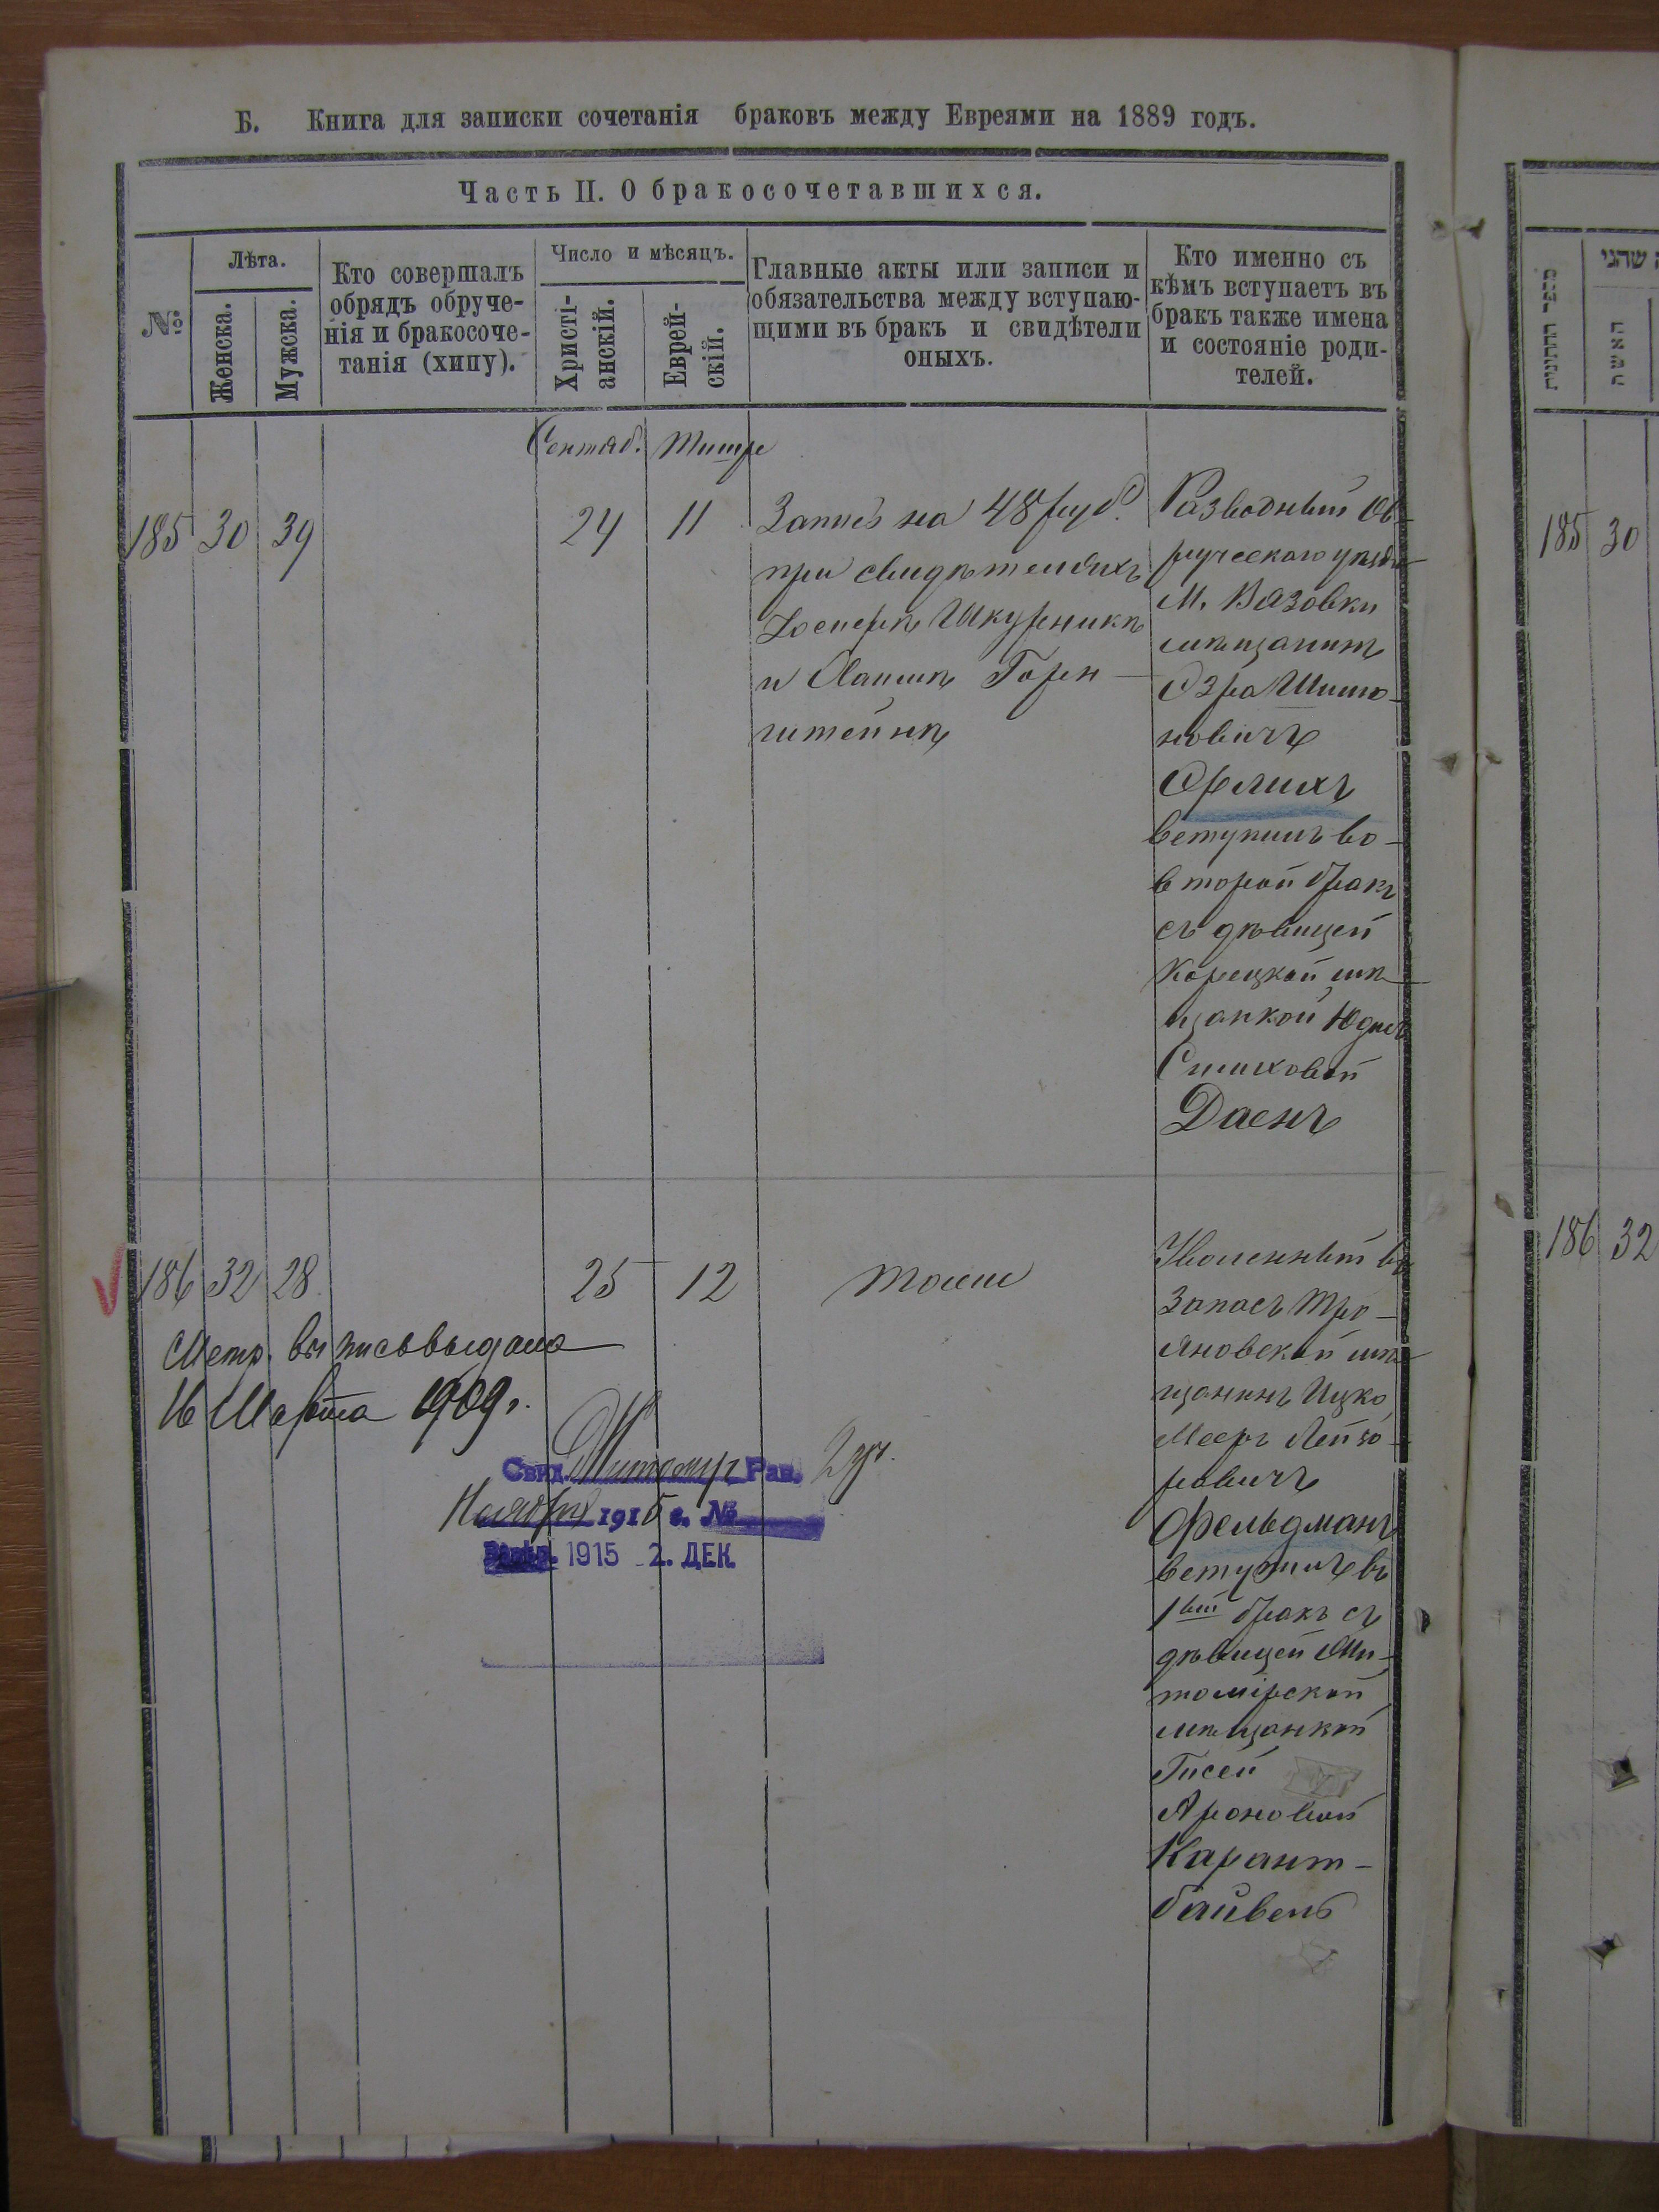 Б. Книга для записки сочетанія браковъ между Евреями на 1889 годъ.
Часть II. О бракосочетавшихся.
№
Лѣта.
Женска.
Мужска.
Кто совершалъ
обрядъ обруче-
нія и бракосоче-
танія (хипу).
Число и мѣсяцъ.
Христі-
анскій.
Еврей-
скій.
Главные акты или записи и
обязательства между вступаю-
щими въ бракъ и свидѣтели
оныхъ.
Кто именно съ
кѣмъ вступаетъ въ
бракъ также имена
и состояніе роди-
телей.
Сентяб. Тишре
185 30 39 24 11
Запись на 48 руб.
при свидѣтеляхъ
Іосифѣ Шкурникѣ
и Хаимѣ Горн-
штейнѣ
Разводный Ов-
ручскаго уѣзда
М. Вязовки
мѣщанинъ
Эзра Шимо-
новичъ
Эрлихъ
вступилъ во
второй бракъ
съ дѣвицей
Корецкой мѣ-
щанкой
Даенъ
186 32 28 25 12 тоже
Уволенный въ
запасъ Тро-
яновскій мѣ-
щанинъ Ицко
Мееръ Лейзо-
ровичъ
Фельдманъ
вступилъ въ
1вый бракъ съ
дѣвицей Жи-
томірской
мѣщанкой
Гисей
Ароновой
Карант-
байвель
Метр. выпись выдана
16 Марта 1909 г.
Свид. Житомир. Рав. 2 уч.
Ноября 1915 г. №
1915 2. ДЕК.
185 30
186 32
האשה